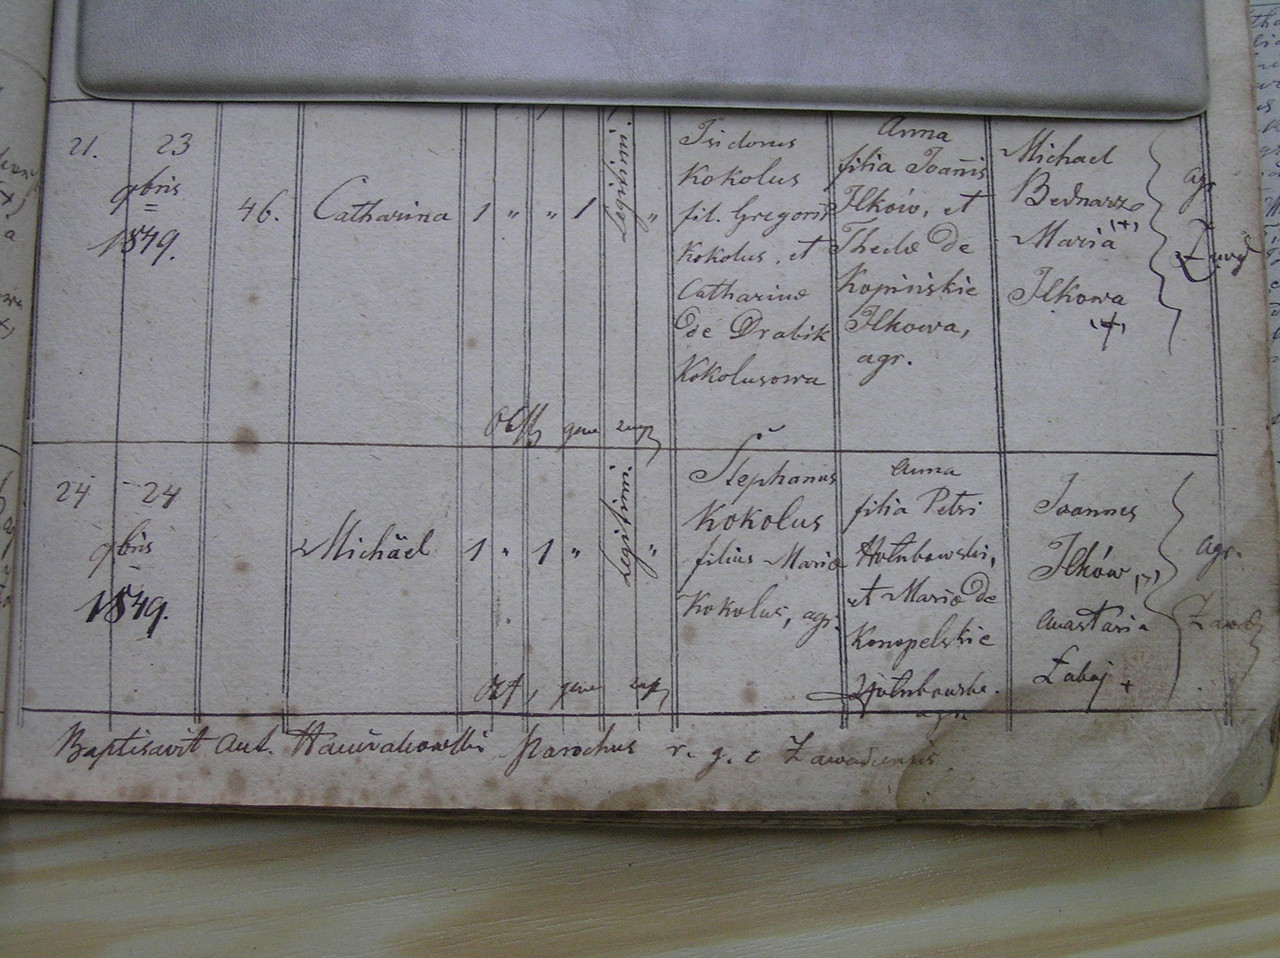 21. 23
9bris
1849.
46.
Catharina 1 " " 1 Legitimi. "
Isidorus
Kokolus
fil. Gregorii
Kokolus, et
Catharinæ
de Drabik
Kokolusowa
Anna
filia Joannis
Ilków, et
Theclæ de
Kopińskie
Ilkowa,
agr.
Michael
Bednarz
(+)
Maria
Ilkowa
(+)
agr.
24 24
9bris
1849.
Michäel 1 " 1 " Legitimi. "
Stephanus
Kokolus
filius Mariæ
Kokolus, agr.
Anna
filia Petri
Hołubowski,
et Mariæ de
Konopelskie
Hołubowska.
agr.
Joannes
Ilków,
Anastasia
Łabaj +
agr.
Baptisavit Ant. parochus r. g. c Zawadensis